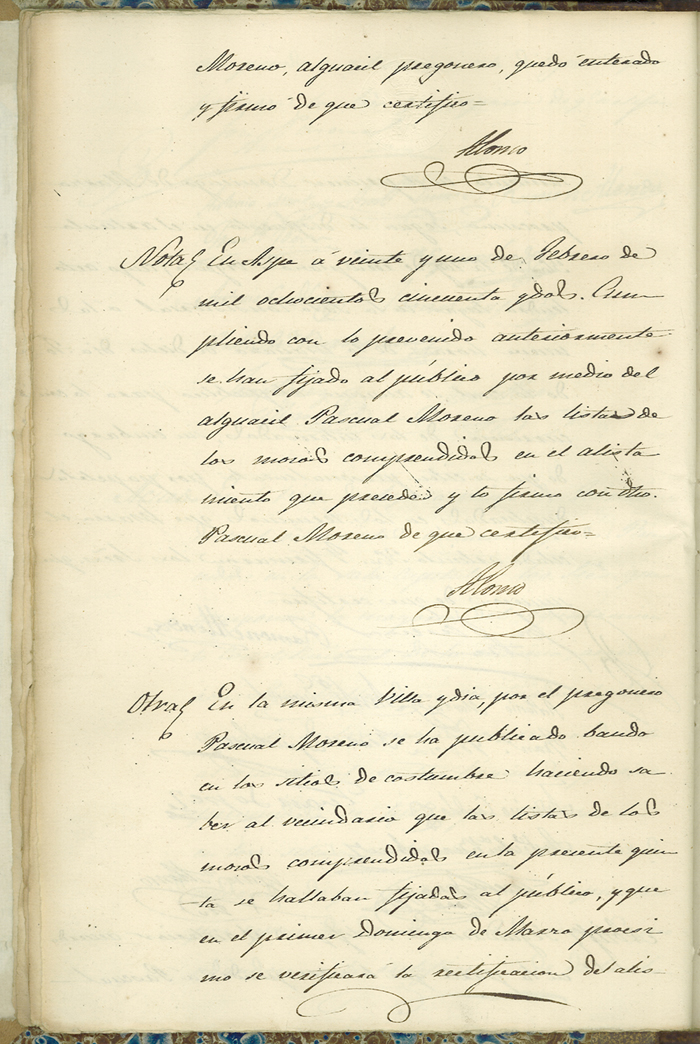 Moreno, alguacil pregonero, quedó enterado
y firmó de que certifico=
Alonso
Nota En Aspe á veinte y uno de Febrero de
mil ochocientos cincuenta y dos. Cum
pliendo con lo prevenido anteriormente
se han fijado al público por medio del
alguacil Pascual Moreno las listas de
los mozos comprendidos en el alista
miento que precede y lo firmo con dho.
Pascual Moreno de que certifico=
Alonso
Otra En la misma Villa y dia, por el pregonero
Pascual Moreno se ha publicado bando
en los sitios de costumbre haciendo sa
ber al vecindario que las listas de los
mozos comprendidos en la presente quin
ta se hallaban fijadas al público, y que
en el primer Domingo de Marzo procsi
mo se verificará la rectificacion del alis-